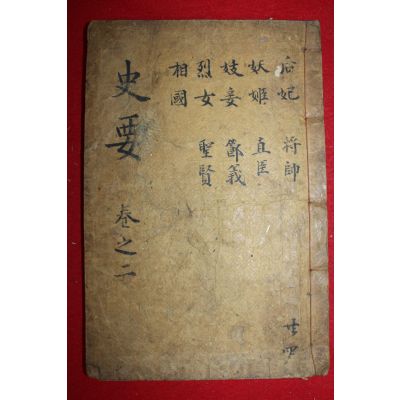 后妃 將帥
妖姬 直臣
妓妾 節義
烈女 聖賢
相國
史要 卷之二
共四